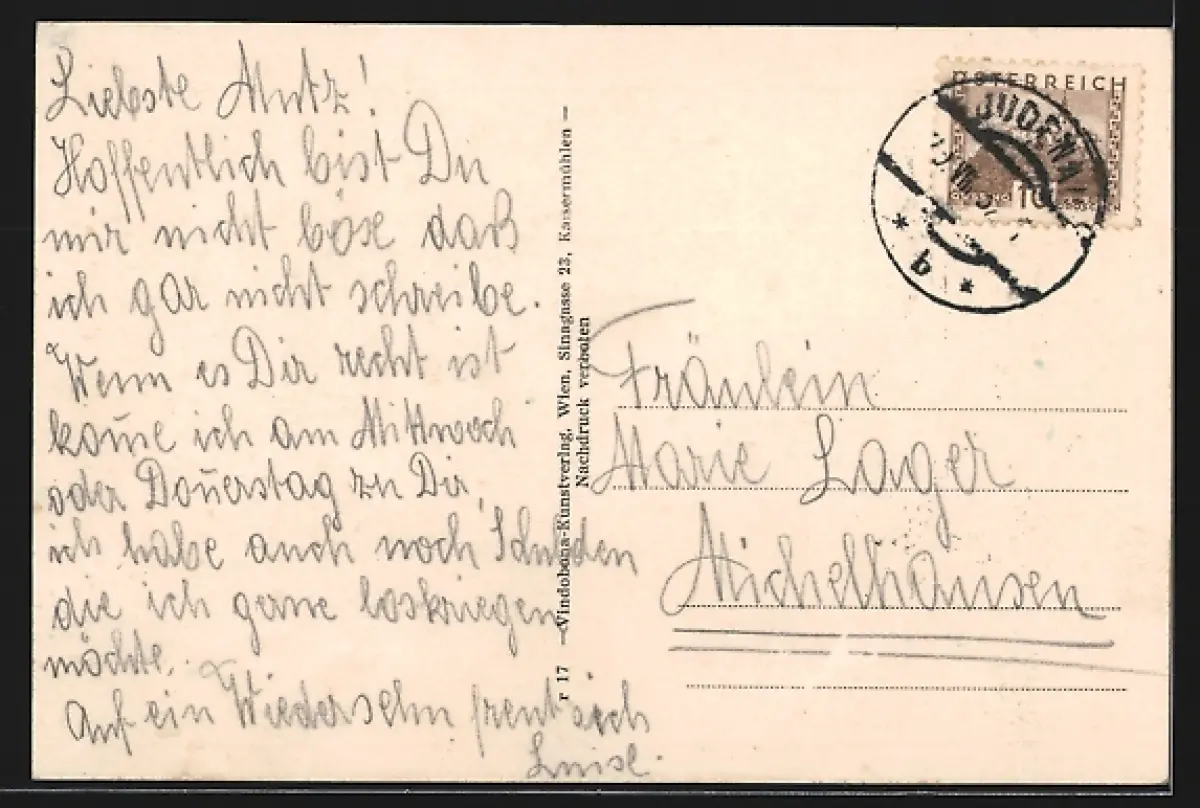 Liebste Mutz!
Hoffentlich bist Du
mir nicht böse daß
ich gar nicht schreibe.
Wenn es Dir recht ist
kom̄e ich am Mittwoch
oder Don̄erstag zu Dir,
ich habe auch noch Schulden
die ich gerne loskriegen
möchte.
Auf ein Wiedersehn freut sich
Luise.
r 17 —Vindobona-Kunstverlag, Wien, Sinagasse 23, Kaisermühlen —
Nachdruck verboten
ÖSTERREICH
JUDENA
VII
10
GROSCHEN
* b *
Fräulein
Marie Lager
Michelhausen